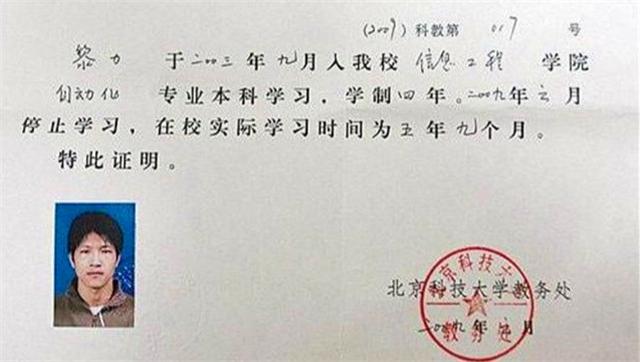 (2009)科教第 017 号
黎力 于二〇〇三年九月入我校 信息工程 学院
自动化 专业本科学习，学制四年。二〇〇九年六月
停止学习，在校实际学习时间为五年九个月。
特此证明。
北京科技大学
北京科技大学教务处
教务处
二〇〇九年六月